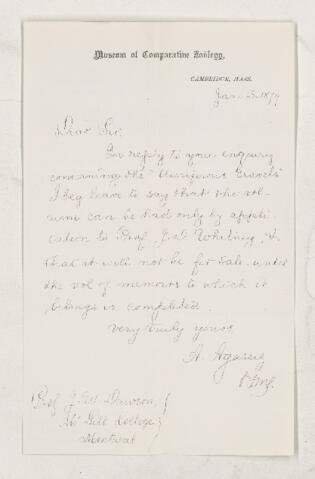 Museum of Comparative Zoology,
CAMBRIDGE, MASS.
Jan. 23. 1879
Dear Sir:
In reply to your enquiry
concerning the "Auriferous Gravels"
I beg leave to say that the vol-
ume can be had only by appli-
cation to Prof. J. D. Whitney, &
that it will not be for sale until
the vol of memoirs to which it
belongs is completed.
Very truly yours
A. Agassiz
Prof J. W. Dawson,
Mc Gill College
Montreal